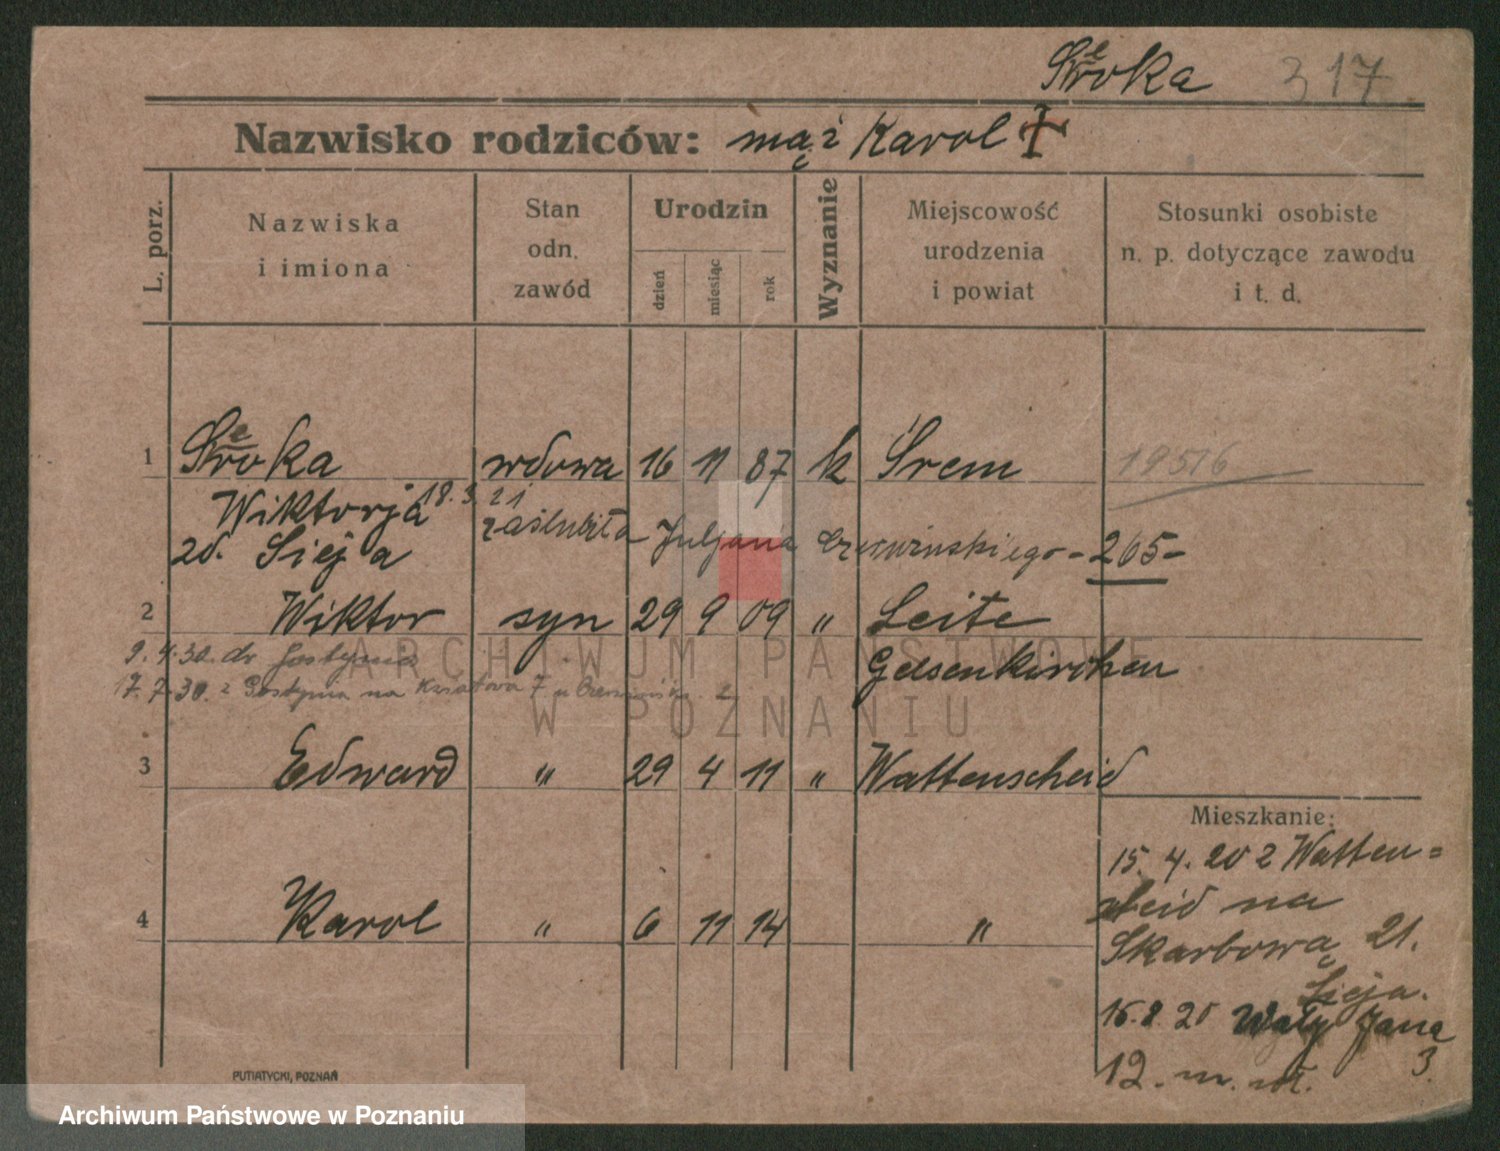 317
Nazwisko rodziców: mąż Karol
L. porz.
Nazwiska i imiona
Stan odn. zawód
Urodzin
dzień
miesiąc
rok
Wyznanie
Miejscowość urodzenia i powiat
Stosunki osobiste n. p. dotyczące zawodu i t. d.
1 wdowa 16 11 87 k Śrem 19516
Wiktorja 18.3.21 zaślubiła Juljana - 265 -
zd. Sieja
2 Wiktor syn 29 9 09 „ Leite
9.4.30. do Gostynia Gelsenkirchen
17.7.30. z Gostynia na 7
3 Edward „ 29 4 11 „ Wattenscheid
Mieszkanie:
15.4.20 z Watten=
scheid na
4 Karol „ 6 11 14 „
Skarbową 21.
Sieja.
16.8.20 Wały Jana
3.
12. m.
PUTIATYCKI, POZNAŃ
ARCHIWUM PAŃSTWOWE
W POZNANIU
Archiwum Państwowe w Poznaniu